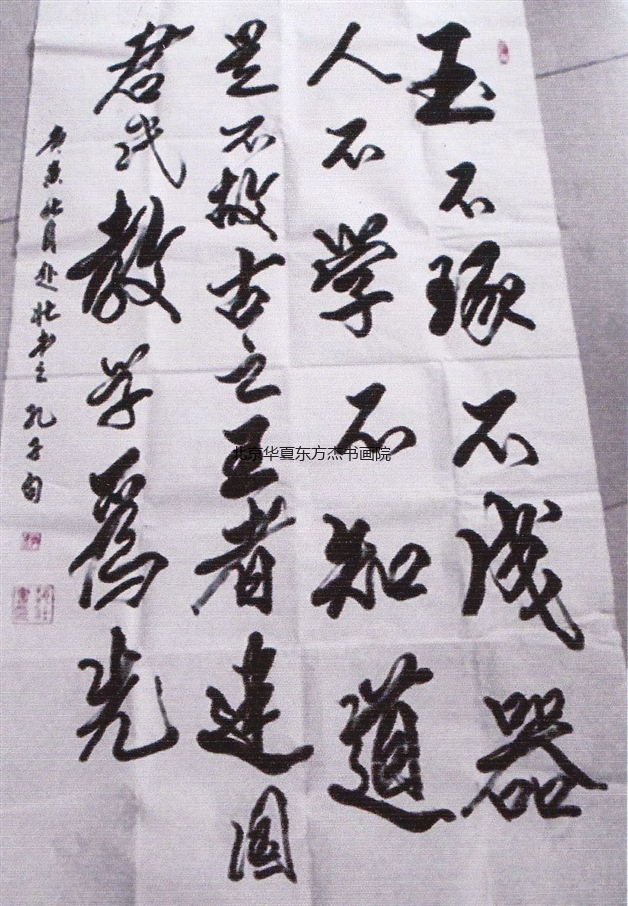 玉不琢不成器
人不学不知道
是不故古之王者建国
君民教学為先
庚寅月赴书之孔子句
北京华夏东方杰书画院